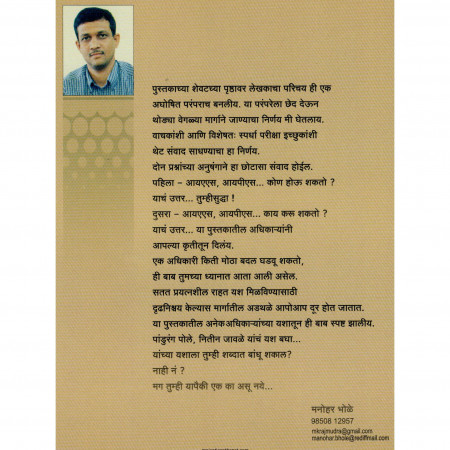 पुस्तकाच्या शेवटच्या पृष्ठावर लेखकाचा परिचय ही एक
अघोषित परंपराच बनलीय. या परंपरेला छेद देऊन
थोड्या वेगळ्या मार्गाने जाण्याचा निर्णय मी घेतलाय.
वाचकांशी आणि विशेषतः स्पर्धा परीक्षा इच्छुकांशी
थेट संवाद साधण्याचा हा निर्णय.
दोन प्रश्नांच्या अनुषंगाने हा छोटासा संवाद होईल.
पहिला – आयएएस, आयपीएस... कोण होऊ शकतो ?
याचं उत्तर... तुम्हीसुद्धा !
दुसरा – आयएएस, आयपीएस... काय करू शकतो ?
याचं उत्तर... या पुस्तकातील अधिकाऱ्यांनी
आपल्या कृतीतून दिलंय.
एक अधिकारी किती मोठा बदल घडवू शकतो,
ही बाब तुमच्या ध्यानात आता आली असेल.
सतत प्रयत्नशील राहत यश मिळविण्यासाठी
दृढनिश्चय केल्यास मार्गातील अडथळे आपोआप दूर होत जातात.
या पुस्तकातील अनेकअधिकाऱ्यांच्या यशातून ही बाब स्पष्ट झालीय.
पांडुरंग पोले, नितीन जावळे यांचं यश बघा...
यांच्या यशाला तुम्ही शब्दात बांधू शकाल?
नाही नं ?
मग तुम्ही यापैकी एक का असू नये...
मनोहर भोळे
98508 12957
mkrajmudra@gmail.com
manohar.bhole@rediffmail.com